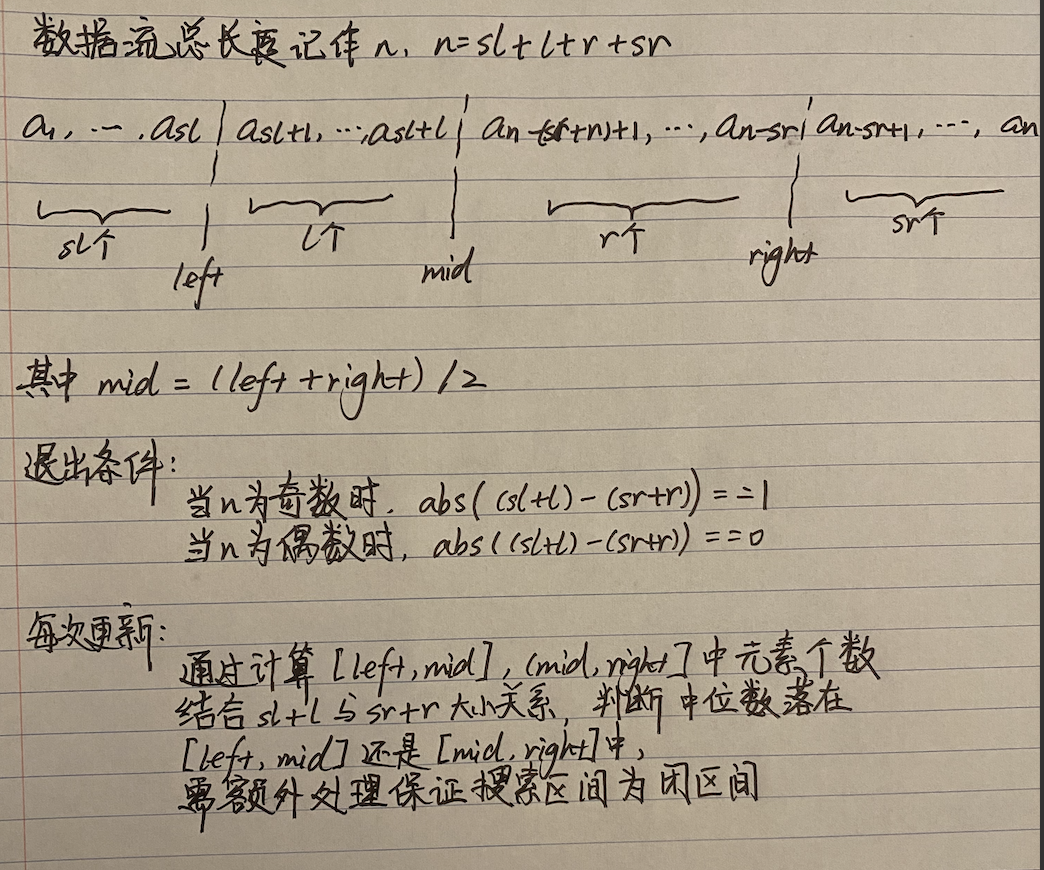 数据流总长度记作 n, n=sl+l+r+sr
a1, …, asl | asl+1, …, asl+l | an-(sr+n)+1, …, an-sr | an-sr+1, …, an
sl个 l个 r个 sr个
left mid right
其中 mid = (left+right)/2
退出条件:
当n为奇数时, abs((sl+l)-(sr+r))==1
当n为偶数时, abs((sl+l)-(sr+r))==0
每次更新:
通过计算[left,mid],(mid,right]中元素个数
结合sl+l与sr+r大小关系,判断中位数落在
[left,mid]还是[mid,right]中,
需额外处理保证搜索区间为闭区间